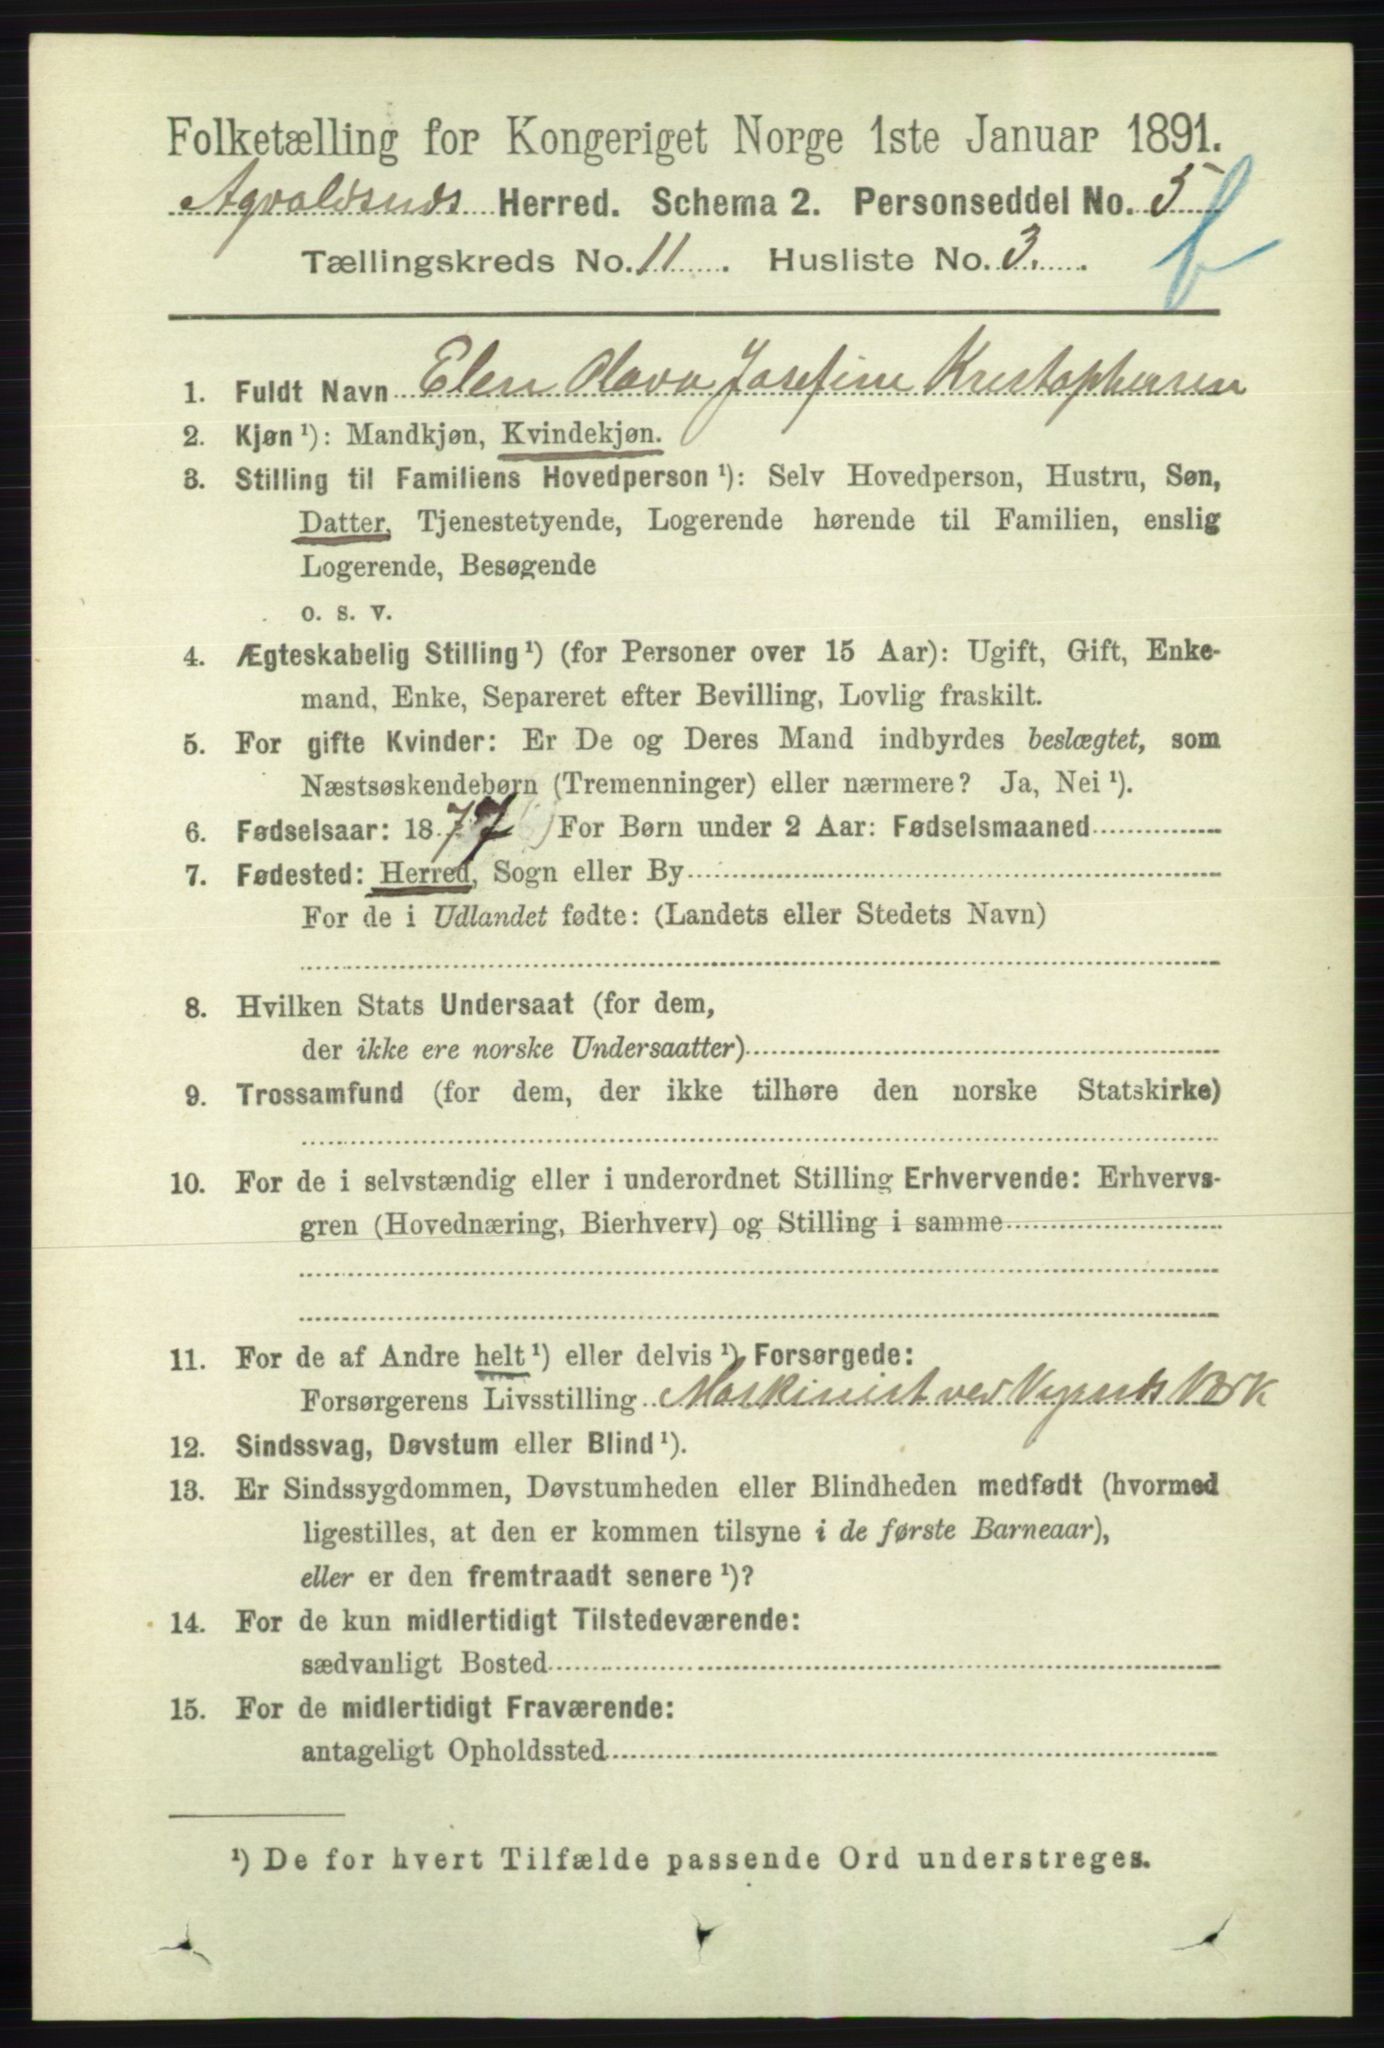 Folketælling for Kongeriget Norge 1ste Januar 1891.
Agvaldsnds Herred. Schema 2. Personseddel No. 5
Tællingskreds No. 11. Husliste No. 3.
1. Fuldt Navn Elen Olava Josefine Kristophersen
2. Kjøn ¹): Mandkjøn, Kvindekjøn.
3. Stilling til Familiens Hovedperson ¹): Selv Hovedperson, Hustru, Søn,
Datter, Tjenestetyende, Logerende hørende til Familien, enslig
Logerende, Besøgende
o. s. v.
4. Ægteskabelig Stilling ¹) (for Personer over 15 Aar): Ugift, Gift, Enke-
mand, Enke, Separeret efter Bevilling, Lovlig fraskilt.
5. For gifte Kvinder: Er De og Deres Mand indbyrdes beslægtet, som
Næstsøskendebørn (Tremenninger) eller nærmere? Ja, Nei ¹).
6. Fødselsaar: 1877 For Børn under 2 Aar: Fødselsmaaned
7. Fødested: Herred, Sogn eller By
For de i Udlandet fødte: (Landets eller Stedets Navn)
8. Hvilken Stats Undersaat (for dem,
der ikke ere norske Undersaatter)
9. Trossamfund (for dem, der ikke tilhøre den norske Statskirke)
10. For de i selvstændig eller i underordnet Stilling Erhvervende: Erhvervs-
gren (Hovednæring, Bierhverv) og Stilling i samme
11. For de af Andre helt ¹) eller delvis ¹) Forsørgede:
Forsørgerens Livsstilling Maskinist ved Vigsnds Værk
12. Sindssvag, Døvstum eller Blind ¹).
13. Er Sindssygdommen, Døvstumheden eller Blindheden medfødt (hvormed
ligestilles, at den er kommen tilsyne i de første Barneaar),
eller er den fremtraadt senere ¹)?
14. For de kun midlertidigt Tilstedeværende:
sædvanligt Bosted
15. For de midlertidigt Fraværende:
antageligt Opholdssted
¹) De for hvert Tilfælde passende Ord understreges.